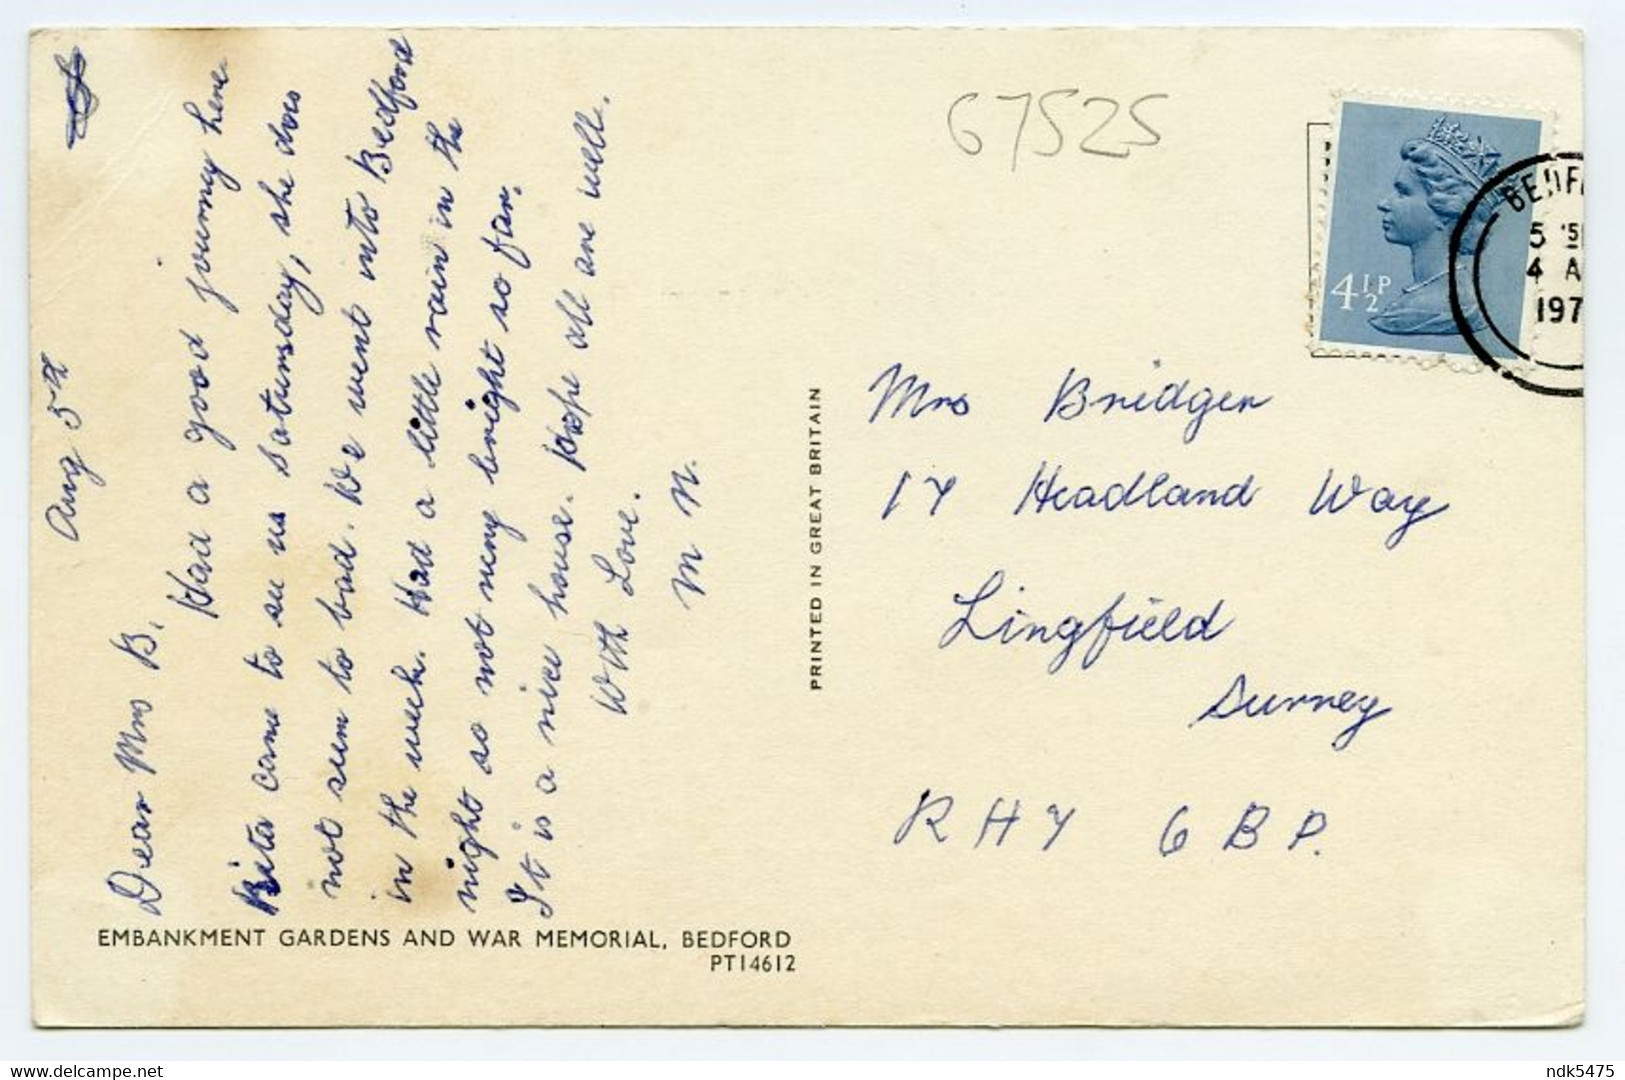 Aug 5th
Dear Mrs B.
Had a good journey here
Rita came to see us Saturday, she does
not seem to bad. We went into Bedford
in the week. Had a little rain in the
night so not very bright so far.
It is a nice house. Hope all are well.
With Love.
M N.
EMBANKMENT GARDENS AND WAR MEMORIAL, BEDFORD
PT14612
PRINTED IN GREAT BRITAIN
67525
4½P
BEDF
5
4 A
197
Mrs Bridger
17 Headland Way
Lingfield
Surrey
RH7 6BP.
ndk5475